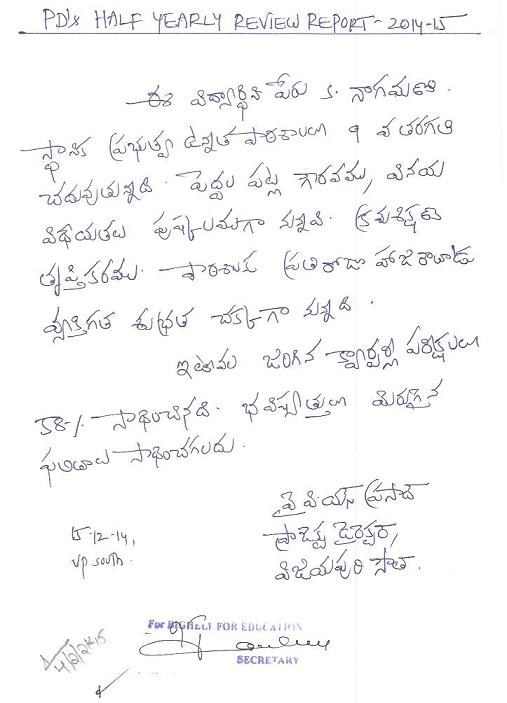 PD's HALF YEARLY REVIEW REPORT - 2014-15
ఈ విద్యార్థిని పేరు k. నాగమణి.
స్థానిక ప్రభుత్వ ఉన్నత పాఠశాలలు 9 వ తరగతి
చదువుతున్నది. పెద్దల పట్ల గౌరవము, వినయ
విధేయతలు పుష్కలముగా నున్నవి. క్రమశిక్షణ
తృప్తికరము. పాఠశాలకు ప్రతిరోజు హాజరు
వ్యక్తిగత శుభ్రత చక్కగా నున్నది.
ఇటీవల జరిగిన క్వార్టర్లీ పరీక్షలలు
38-/. సాధించినది. భవిష్యత్తులు మెరుగైన
ఫలితాలు సాధించగలదు.
వై వియస్ ప్రసాద్
ప్రాజెక్టు డైరెక్టర్,
విజయపురి సౌత్.
15-12-14,
VP South.
For BIGHELP FOR EDUCATION
SECRETARY
4/2/2K15